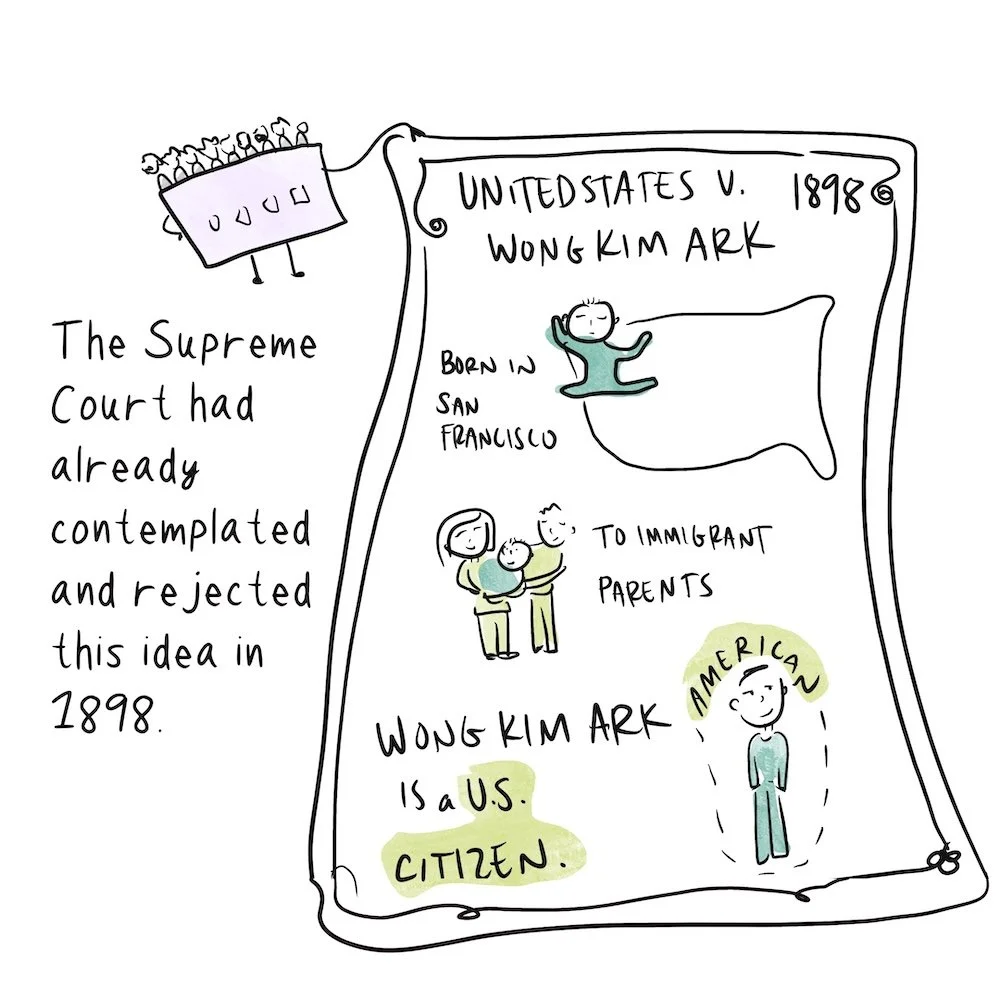 The Supreme
Court had
already
contemplated
and rejected
this idea in
1898.
UNITED STATES V. 1898
WONG KIM ARK
BORN IN
SAN
FRANCISCO
TO IMMIGRANT
PARENTS
AMERICAN
WONG KIM ARK
IS a U.S.
CITIZEN.